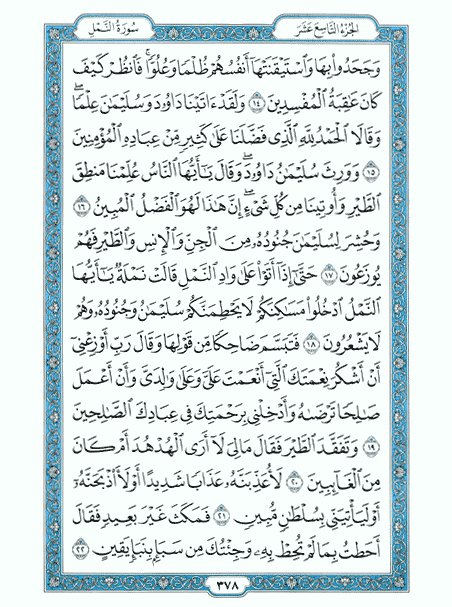 الجزء التاسع عشر
سورة النمل
وَجَحَدُوا۟ بِهَا وَٱسْتَيْقَنَتْهَآ أَنفُسُهُمْ ظُلْمًا وَعُلُوًّا ۚ فَٱنظُرْ كَيْفَ
كَانَ عَٰقِبَةُ ٱلْمُفْسِدِينَ ١٤ وَلَقَدْ ءَاتَيْنَا دَاوُۥدَ وَسُلَيْمَٰنَ عِلْمًا ۖ
وَقَالَا ٱلْحَمْدُ لِلَّهِ ٱلَّذِى فَضَّلَنَا عَلَىٰ كَثِيرٍ مِّنْ عِبَادِهِ ٱلْمُؤْمِنِينَ
١٥ وَوَرِثَ سُلَيْمَٰنُ دَاوُۥدَ ۖ وَقَالَ يَٰٓأَيُّهَا ٱلنَّاسُ عُلِّمْنَا مَنطِقَ
ٱلطَّيْرِ وَأُوتِينَا مِن كُلِّ شَىْءٍ ۖ إِنَّ هَٰذَا لَهُوَ ٱلْفَضْلُ ٱلْمُبِينُ ١٦
وَحُشِرَ لِسُلَيْمَٰنَ جُنُودُهُۥ مِنَ ٱلْجِنِّ وَٱلْإِنسِ وَٱلطَّيْرِ فَهُمْ
يُوزَعُونَ ١٧ حَتَّىٰٓ إِذَآ أَتَوْا۟ عَلَىٰ وَادِ ٱلنَّمْلِ قَالَتْ نَمْلَةٌ يَٰٓأَيُّهَا
ٱلنَّمْلُ ٱدْخُلُوا۟ مَسَٰكِنَكُمْ لَا يَحْطِمَنَّكُمْ سُلَيْمَٰنُ وَجُنُودُهُۥ وَهُمْ
لَا يَشْعُرُونَ ١٨ فَتَبَسَّمَ ضَاحِكًا مِّن قَوْلِهَا وَقَالَ رَبِّ أَوْزِعْنِىٓ
أَنْ أَشْكُرَ نِعْمَتَكَ ٱلَّتِىٓ أَنْعَمْتَ عَلَىَّ وَعَلَىٰ وَٰلِدَىَّ وَأَنْ أَعْمَلَ
صَٰلِحًا تَرْضَىٰهُ وَأَدْخِلْنِى بِرَحْمَتِكَ فِى عِبَادِكَ ٱلصَّٰلِحِينَ
١٩ وَتَفَقَّدَ ٱلطَّيْرَ فَقَالَ مَالِىَ لَآ أَرَى ٱلْهُدْهُدَ أَمْ كَانَ
مِنَ ٱلْغَآئِبِينَ ٢٠ لَأُعَذِّبَنَّهُۥ عَذَابًا شَدِيدًا أَوْ لَأَا۟ذْبَحَنَّهُۥٓ
أَوْ لَيَأْتِيَنِّى بِسُلْطَٰنٍ مُّبِينٍ ٢١ فَمَكَثَ غَيْرَ بَعِيدٍ فَقَالَ
أَحَطتُ بِمَا لَمْ تُحِطْ بِهِۦ وَجِئْتُكَ مِن سَبَإٍۭ بِنَبَإٍ يَقِينٍ ٢٢
٣٧٨